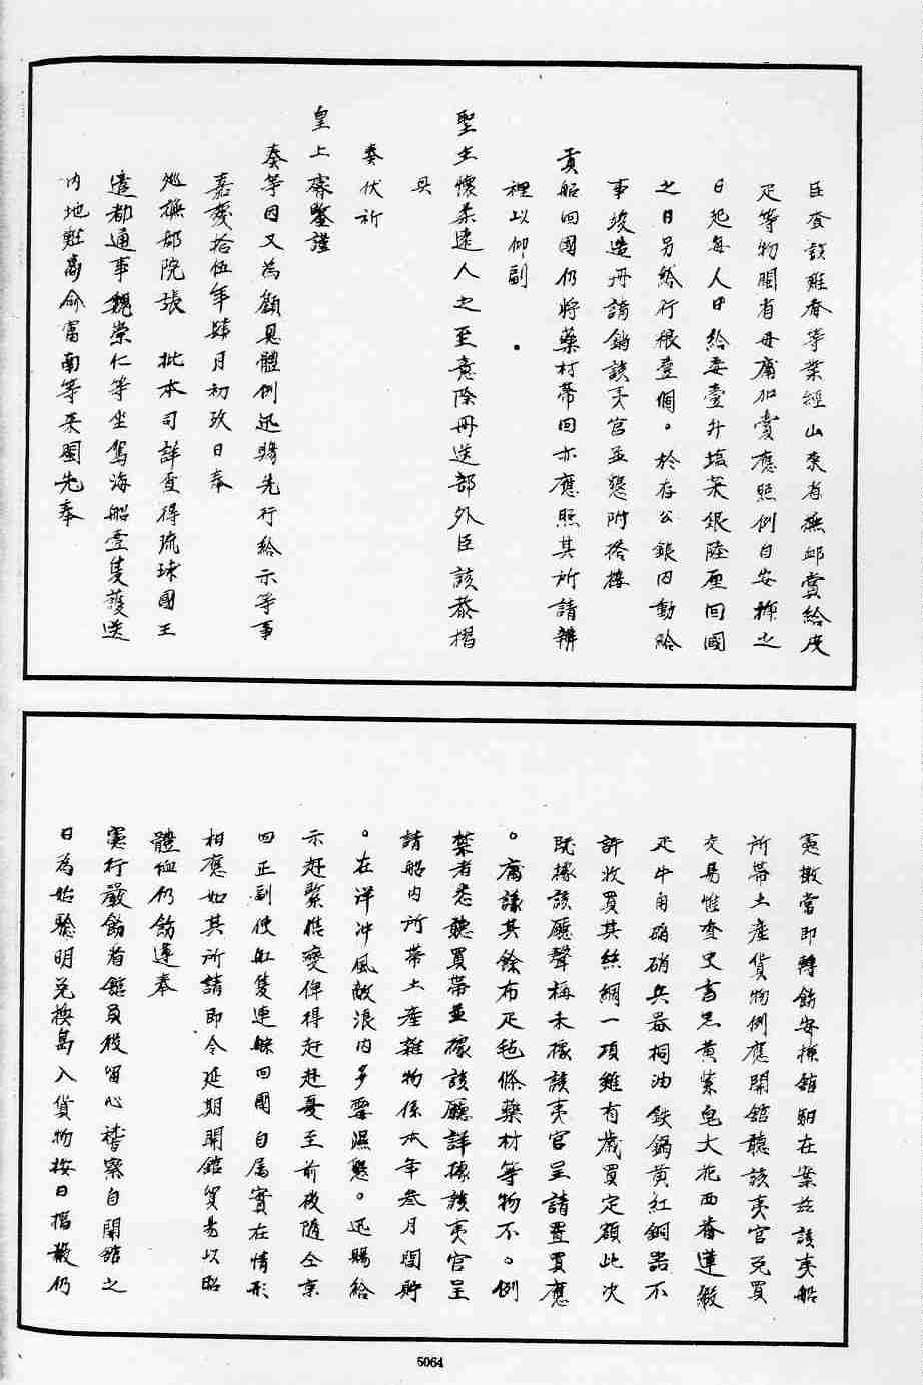 臣查該難番等業經山東省撫卹賞給皮
疋等物閩省毋庸加賞應照例自安揷之
日起每人日給米壹升塩菜銀陸厘回國
之日另給行粮壹個。於存公銀內動給
事竣造册請銷該夷官並懇附搭接
貢船回國仍將藥材帶回亦應照其所請辨
理以仰副
聖主懷柔遠人之至意除册送部外臣該恭摺
具
奏伏祈
皇上睿鑒謹
奏等因又為願具體例迅賜先行給示等事
嘉慶拾伍年肆月初玖日奉
廵撫部院張 批本司詳查得琉球國王
遣都通事魏崇仁等坐駕海船壹隻護送
內地難商俞富南等來閩先奉
憲檄當即轉飭安揷館驛在案茲該夷船
所帶土產貨物例應開館聽該夷官兌買
交易惟查史書黑黃紫皂大花西番蓮緞
疋牛角硝磺兵器桐油鉄鍋黃紅銅器不
許收買其絲綢一項雖有歲買定額此次
既據該廳聲稱未據該夷官呈請置買應
。庸議其餘布疋毡條藥材等物不。例
禁者悉聽買帶並據該廳詳據該夷官呈
請船內所帶土產雜物係本年叁月間貯
。在洋冲風敵浪內多霉濕懇。迅賜給
示赶緊售變俾得赶赴夏至前後隨仝京
回正副使船隻連䑸回國自屬實在情形
相應如其所請即令延期開館貿易以昭
體恤仍飭遵奉
憲行嚴飭看館員役留心稽察自開館之
日為始驗明兌換島入貨物按日摺報仍
5064